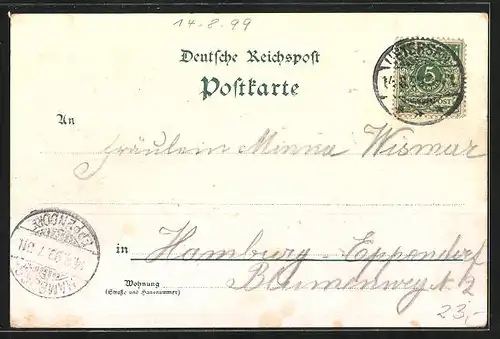 14.8.99
Deutsche Reichspost
Postkarte
UETERSEN
5
An
Fräulein Minna Wismar
EPPENDORF
HAMBURG
in Hamburg Eppendorf
Wohnung
(Straße und Hausnummer)
Blumenweg
23,-